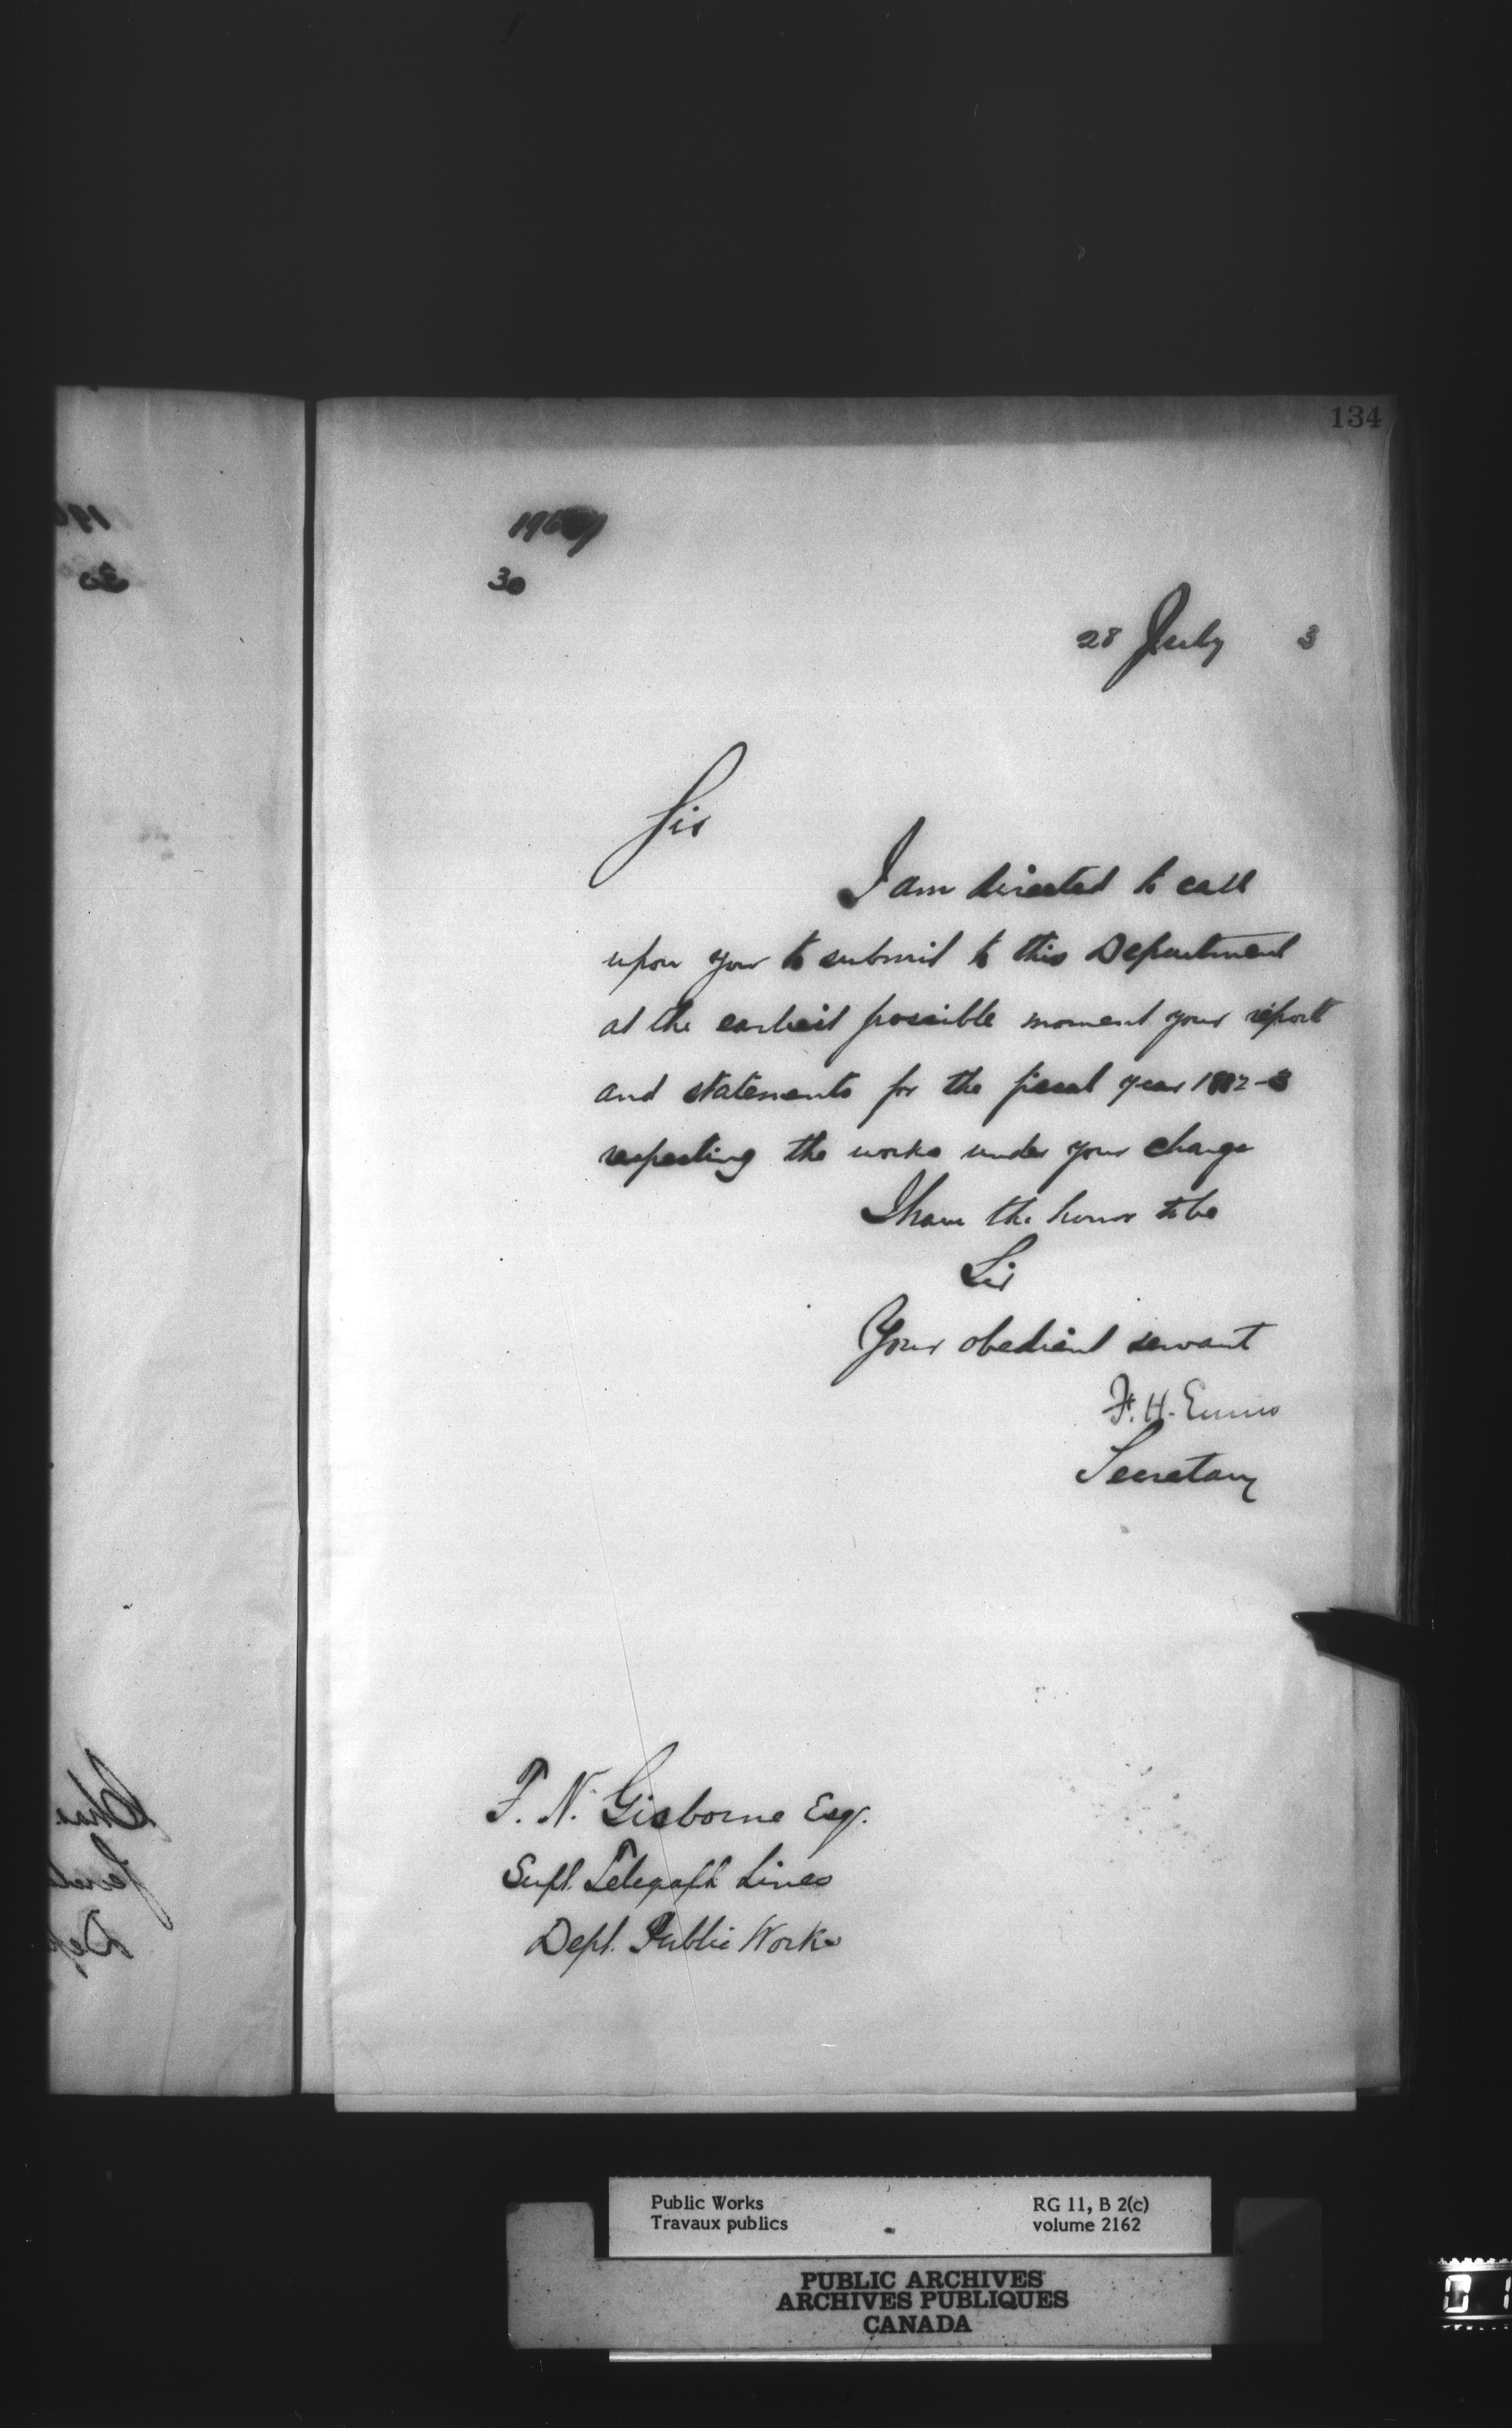 134
30
28 July 3
Sir
I am directed to call
upon you to submit to this Department
at the earliest possible moment your report
and statements for the fiscal year 1882-3
respecting the works under your charge
I have the honor to be
Sir
Your obedient servant
F. H. Ennis
Secretary
F. N. Gisborne Esqr.
Supt. Telegraph Lines
Dept. Public Works
Public Works
Travaux publics
RG 11, B 2(c)
volume 2162
PUBLIC ARCHIVES
ARCHIVES PUBLIQUES
CANADA